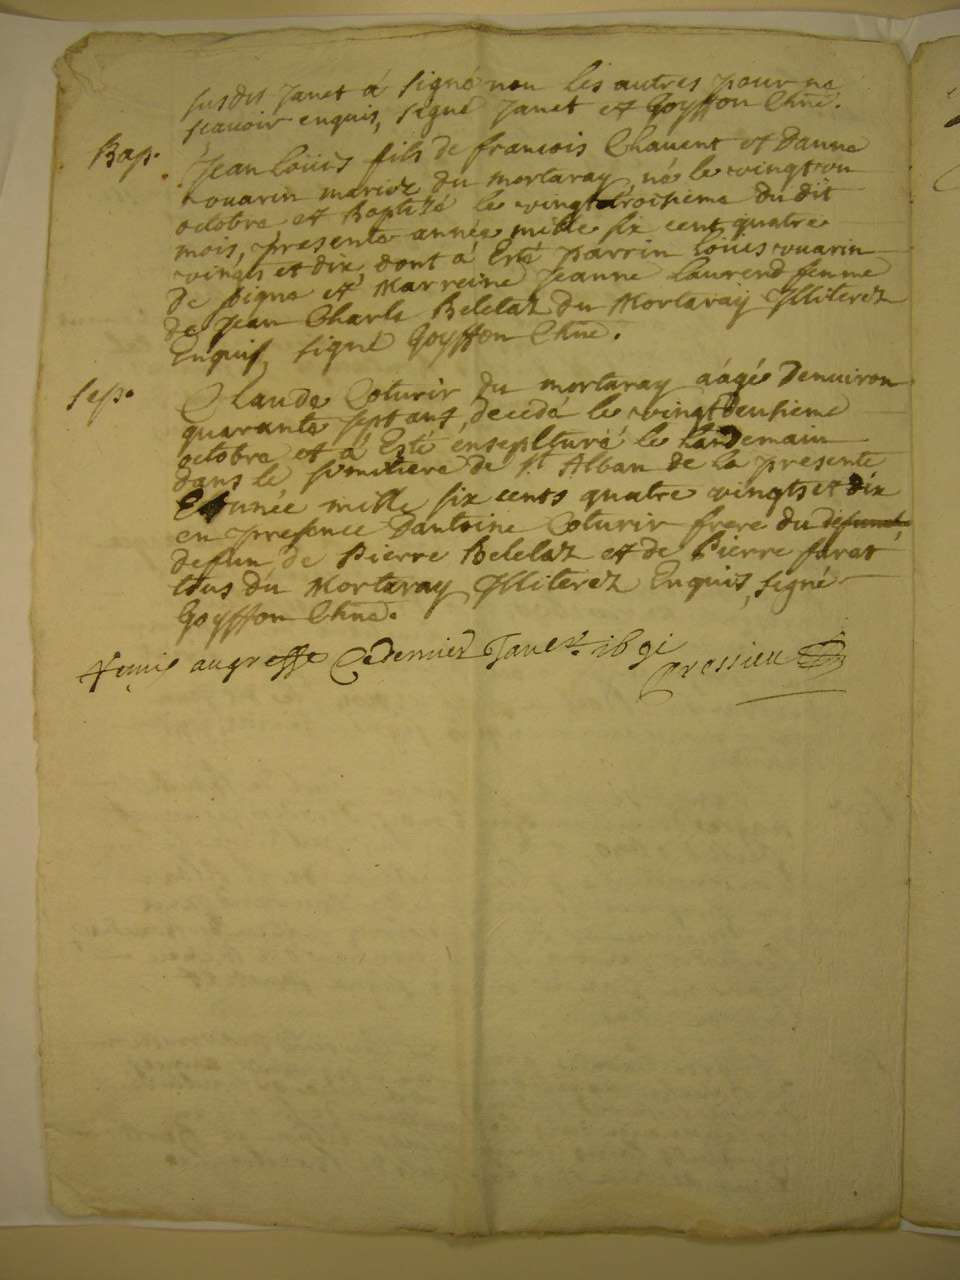 susdit Janet á signé non les autres pour ne
scavoir enquis, signé Janet et Goyffon Chne.
Bap. Jean louis fils de francois Chavent et Danne
vuarin mariez du mortaray, né le vingt un
octobre et Baptizé le vingt troisieme du dit
mois, presente année mille six cent quatre
vingts et dix, dont á Esté parrin louis vuarin
De pigna et Marreine Jeanne laurend femme
de Jean Charle Belelaz du Mortaray Illiterez
Enquis, signé Goyffon Chne.
Sep. Claude Coturir du mortaray áagé Denuiron
quarante sept ans, decedé le vingt deusieme
octobre et á Esté enseplturé le landemain
dans le simitiere de St Alban de la presente
année mille six cents quatre vingts et dix
en presence Dantoine Coturir frere du defunct
defun, de Pierre Belelaz et de Pierre farat
tous du Mortaray Illiterez Enquis, signé
Goyffon Chne.
Remis au greffe Ce dernier Janer. 1691
Pressieu